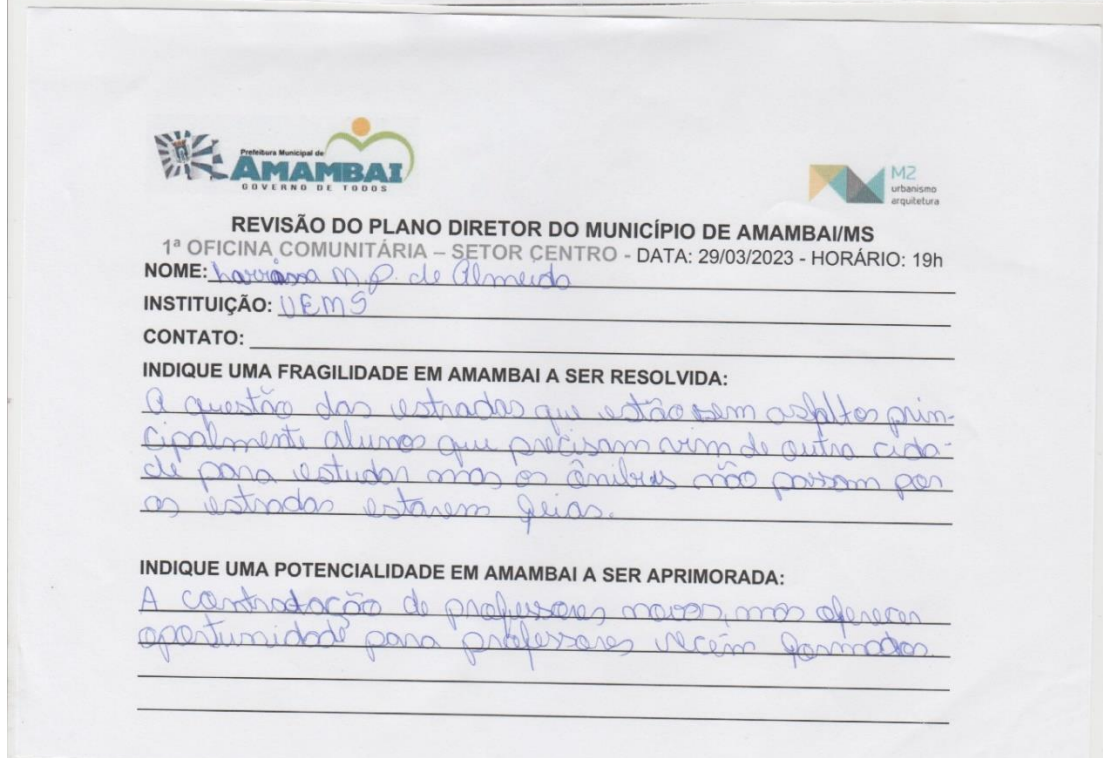 Prefeitura Municipal de
AMAMBAI
GOVERNO DE TODOS
M2
urbanismo
arquitetura
REVISÃO DO PLANO DIRETOR DO MUNICÍPIO DE AMAMBAI/MS
1ª OFICINA COMUNITÁRIA – SETOR CENTRO - DATA: 29/03/2023 - HORÁRIO: 19h
NOME: Larrissa M.P. de Almeida
INSTITUIÇÃO: UEMS
CONTATO:
INDIQUE UMA FRAGILIDADE EM AMAMBAI A SER RESOLVIDA:
A questão das estradas que estão sem asfaltos prin-
cipalmente alunos que precisam vim de outra cida-
de para estudar mas os ônibus não passam por
as estradas estarem feias.
INDIQUE UMA POTENCIALIDADE EM AMAMBAI A SER APRIMORADA:
A contratação de professores novos, mas oferecer
oportunidade para professores recém formados.